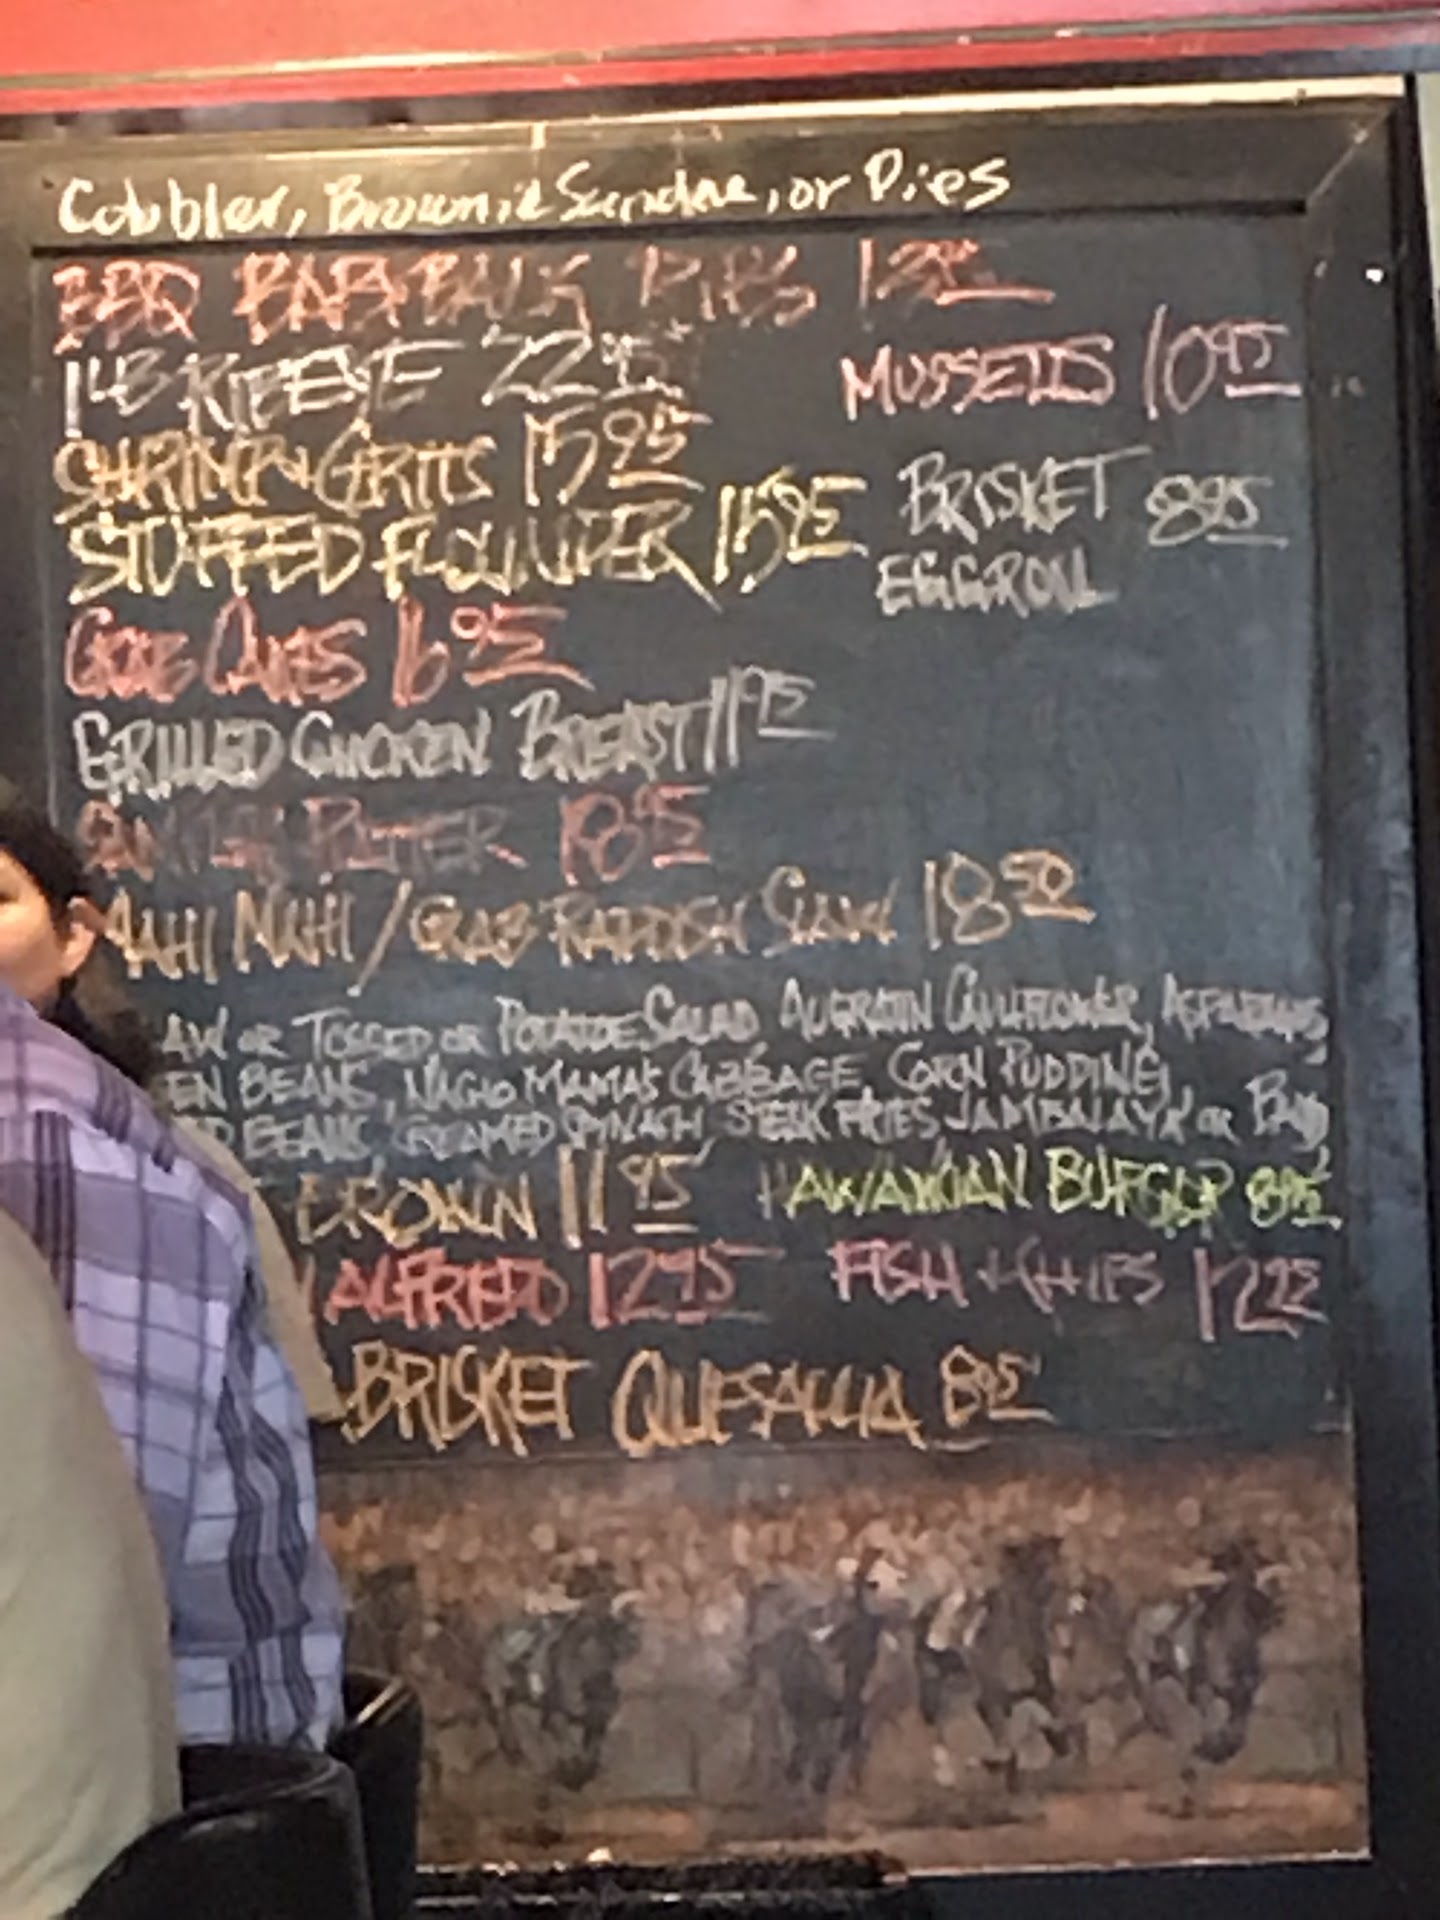 Cobbler, Brownie Sundae, or Pies
BBQ BABYBACK RIBS
1LB RIBEYE 22 95
MUSSELLS 10 95
SHRIMP & GRITS 15 95
STUFFED FLOUNDER 15 95
BRISKET 8 95
EGGROLL
CRAB CAKES 16 95
GRILLED CHICKEN BREAST 11 95
PLATTER 18 95
MAHI MAHI / CRAB RADDISH SLAW 18 50
AW OR TOSSED OR POTATOE SALAD AUGRATIN CAULIFLOWER, ASPARAGUS,
EN BEANS, NACHO MAMA'S CABBAGE, CORN PUDDING,
D BEANS, CREAMED SPINACH, STEAK FRIES, JAMBALAYA OR
BROWN 11 95
HAWAIIAN BURGER 8 95
ALFREDO 12 95
FISH & CHIPS 12 95
BRISKET QUESADILLA 8 95